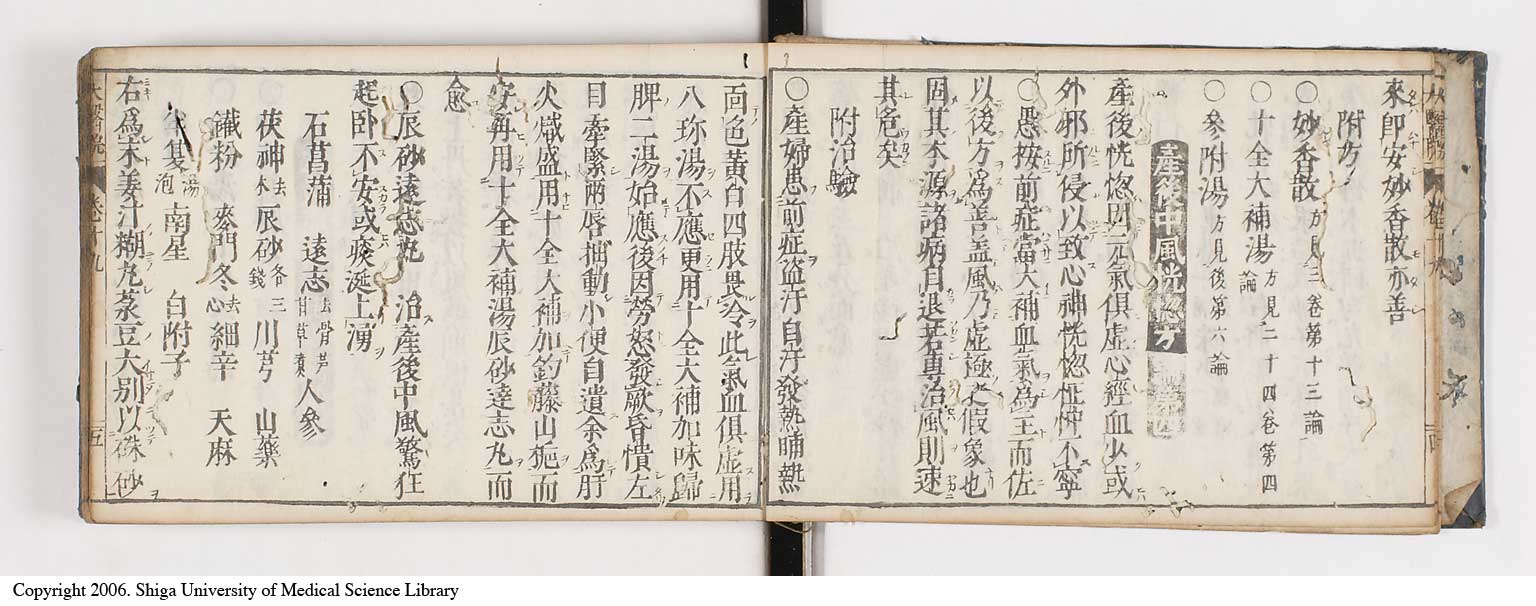 來即安妙香散亦善
附方
○妙香散方見三卷第十三論
○十全大補湯方見二十四卷第四論
○參附湯方見後第六論
產後中風恍惚方論第四
產後恍惚因元氣俱虛心經血少或
外邪所侵以致心神恍惚怔忡不寧
○愚按前症當大補血氣為主而佐
以後方爲善盖風乃虛極之假象也
固其本源諸病自退若專治風則速
其危矣
附治驗
○產婦患前症盜汗自汗發熱晡熱
面色黃白四肢畏冷此氣血俱虛用
八珍湯不應更用十全大補加味歸
脾二湯始應後因勞怒發厥昏憒左
目牽緊兩唇抽動小便自遺余爲肝
火熾盛用十全大補加釣藤山梔而
安再用十全大補湯辰砂遠志丸而
愈
○辰砂遠志丸 治產後中風驚狂
起卧不安或痰涎上湧
石菖蒲 遠志去骨芦甘草煮人參
茯神去木辰砂各三錢川芎 山藥
鐵粉 麥門冬去心細辛 天麻
半夏湯泡南星 白附子
右爲末姜汁糊丸菉豆大別以硃砂
Copyright 2006. Shiga University of Medical Science Library